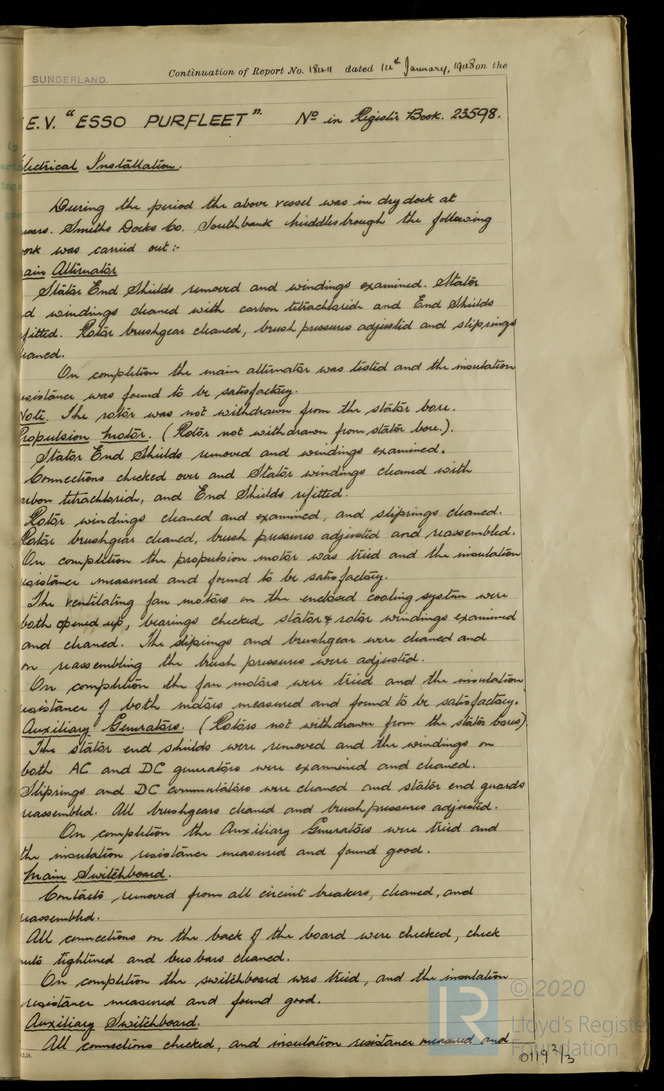 SUNDERLAND.
Continuation of Report No. 18411 dated 14th January, 1948 on the
E.V. "ESSO PURFLEET". No in Register Book. 23598.
lectrical Installation.
During the period the above vessel was in dry dock at
Smiths Docks Co. Southbank Middlesbrough the following
ork was carried out:-
ain Alternator
Stator End Shields removed and windings examined. Stator
d windings cleaned with carbon tetrachloride and End Shields
fitted. Rotor brushgear cleaned, brush pressures adjusted and sliprings
leaned.
On completion the main alternator was tested and the insulation
esistance was found to be satisfactory.
Note. The rotor was not withdrawn from the stator bore.
Propulsion Motor. (Rotor not withdrawn from stator bore.).
Stator End Shields removed and windings examined.
Connections checked over and Stator windings cleaned with
arbon tetrachloride, and End Shields refitted.
Rotor windings cleaned and examined, and sliprings cleaned.
Rotor brushgear cleaned, brush pressures adjusted and reassembled.
On completion the propulsion motor was tried and the insulation
esistance measured and found to be satisfactory.
The ventilating fan motors on the enclosed cooling system were
both opened up, bearings checked, stator & rotor windings examined
and cleaned. The sliprings and brushgear were cleaned and
on reassembling the brush pressures were adjusted.
On completion the fan motors were tried and the insulation
esistance of both motors measured and found to be satisfactory.
Auxiliary Generators. (Rotors not withdrawn from the stator bores)
The stator end shields were removed and the windings on
both AC and DC generators were examined and cleaned.
Sliprings and DC commutators were cleaned and stator end guards
reassembled. All brushgears cleaned and brush pressures adjusted.
On completion the Auxiliary Generators were tried and
the insulation resistance measured and found good.
Main Switchboard.
Contacts removed from all circuit breakers, cleaned, and
reassembled.
All connections on the back of the board were checked, check
nuts tightened and bus bars cleaned.
On completion the switchboard was tried, and the insulation
resistance measured and found good.
Auxiliary Switchboard.
All connections checked, and insulation resistance measured and
LR © 2020
Lloyd's Register
Foundation
0119 2/3